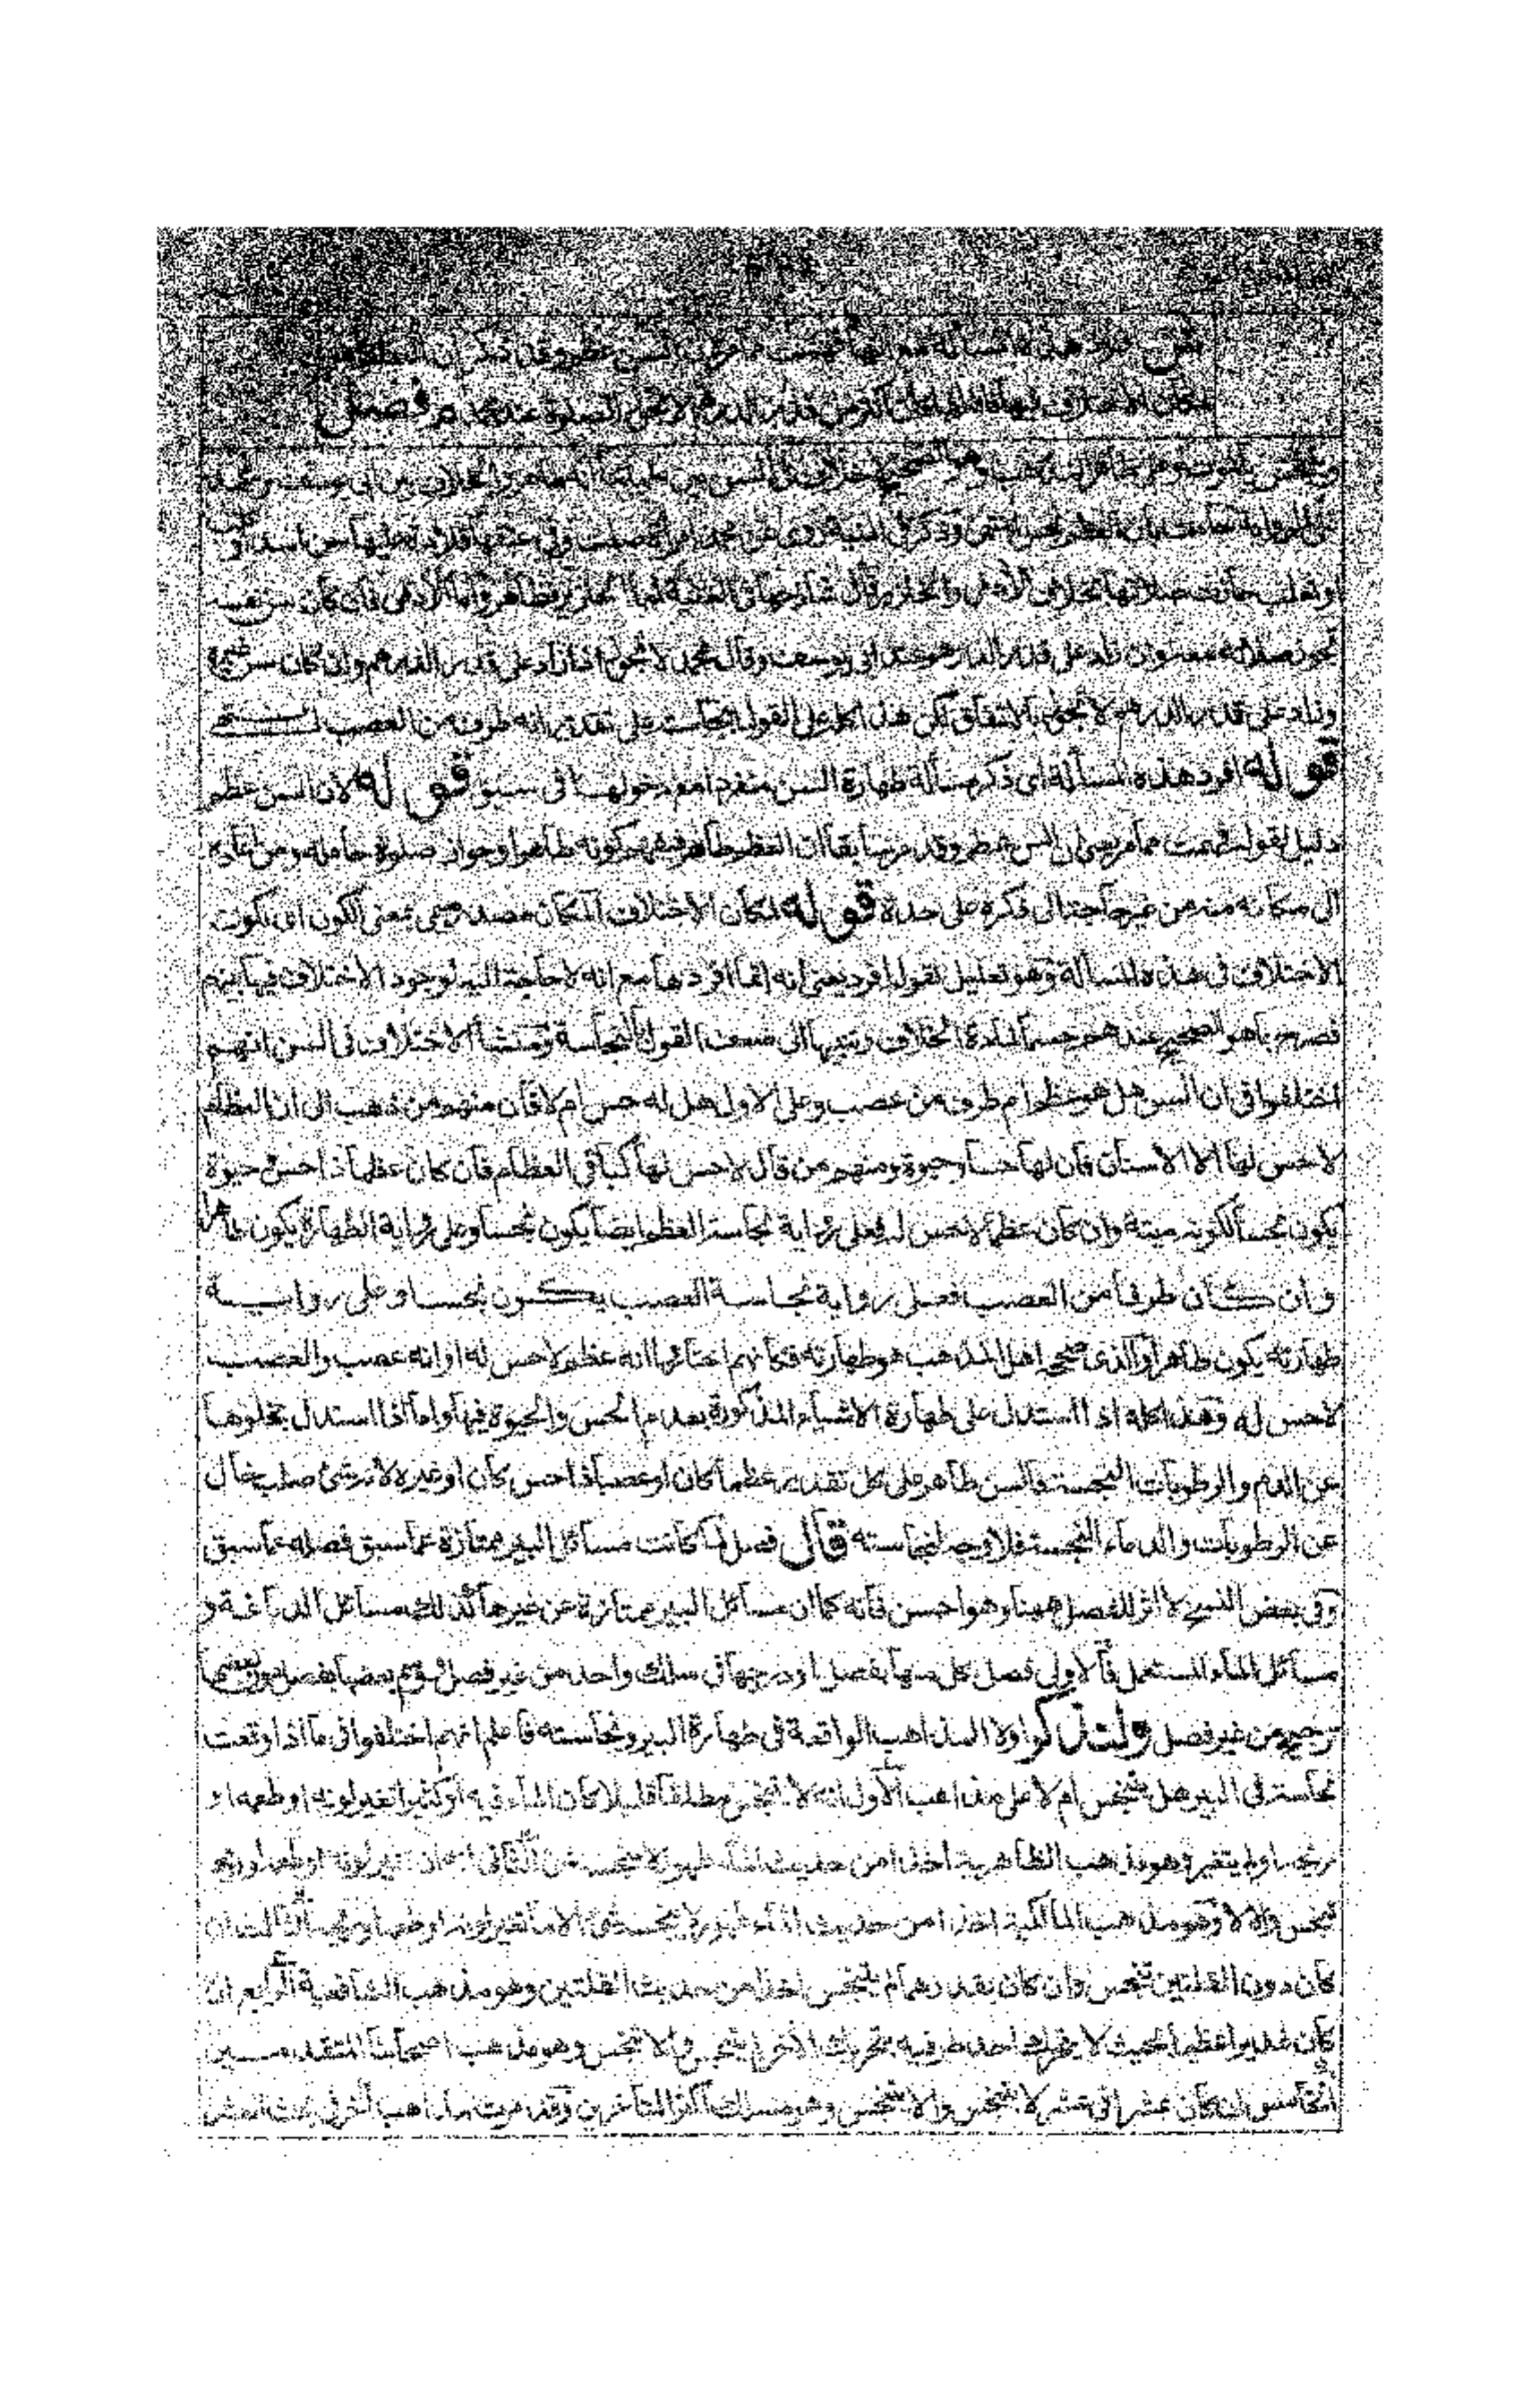 هذه المسألة مع انها فهمت مما مر لان السن عظم وقد ذكر ان العظم طاهر
لمكان الاختلاف فيها فانه اذا كان اكثر من قدر الدرهم لا تجوز الصلوة عند محمد م فصل
ظاهر المذهب وهو الصحيح لا خلاف في السن بين علمائنا انه طاهر والخلاف بين ابي يوسف ومحمد
على الرواية عظم وذكر في المنية روى عن محمد امرأة صلت وفي عنقها قلادة عليها سن اسد او
او ثعلب جازت صلاتها بخلاف الآدمي والخنزير قال شارحها في الغنية اما الخنزير فظاهر واما الآدمي فان كان سن نفسه
تجوز صلاته معه وان زاد على قدر الدرهم عند ابي يوسف وقال محمد لا تجوز اذا زاد على قدر الدرهم وان كان سن غيره
وزاد على قدر الدرهم لا تجوز بالاتفاق لكن هذا كله على القول بنجاسته على تقدير انه طرف من العصب انتهى
قوله افرد هذه المسألة اى ذكر مسألة طهارة السن منفردا مع دخولها فى سبق قوله لان السن عظم
دليل لقوله فهمت مما مر يعنى ان السن عظم وقد مر سابقا ان العظم طاهر فيفهم كونه طاهرا وجواز صلوة حامله ومن اعاده
الى مكانه منه من غير احتياج الى ذكره على حدة قوله لمكان الاختلاف المكان مصدر ميمى بمعنى الكون اى لكون
الاختلاف فى هذه المسألة وهو تعليل لقوله افرد يعنى انه انما افردها مع انه لا حاجة اليه لوجود الاختلاف فيها بينهم
فصرح بما هو الصحيح عندهم حسما لمادة الخلاف وتنبيها الى ضعف القول بالنجاسة ومنشأ الاختلاف فى السن انهم
اختلفوا فى ان السن هل هو عظم ام طرف من عصب وعلى الاول هل له حس ام لا فان منهم من ذهب الى ان العظام
لا حس لها الا الاسنان فان لها حسا وحيوة ومنهم من قال لا حس لها كباقى العظام فان كان عظما ذا حس وحيوة
يكون نجسا لكونه ميتة وان كان عظما لا حس له فعلى رواية نجاسة العظم ايضا يكون نجسا وعلى رواية الطهارة يكون طاهرا
وان كان طرفا من العصب فعلى رواية نجاسة العصب يكون نجسا وعلى رواية
طهارته يكون طاهرا والذى صححه اهل المذهب هو طهارته فكأنهم اختاروا انه عظم لا حس له او انه عصب والعصب
لا حس له وهذا كله اذا استدل على طهارة الاشياء المذكورة بعدم الحس والحيوة فيها واما اذا استدل بخلوها
عن الدم والرطوبات النجسة فالسن طاهر على كل تقدير عظما كان او عصبا ذا حس كان او غيره لانه شئ صلب خال
عن الرطوبات والدماء النجسة فلا وجه لنجاسته قال فصل لما كانت مسائل البير ممتازة عما سبق فصله عما سبق
وفى بعض النسخ لا اثر للفصل ههنا وهو احسن فانه كما ان مسائل البير ممتازة عن غيرها كذلك مسائل الدباغة و
مسائل الماء المستعمل فالاولى فصل كل منها بفصل او درجها فى سلك واحد من غير فصل فوقع بعضها بفصل دون بعض
ترجيح من غير فصل ولنذكر اولا المذاهب الواقعة فى طهارة البير ونجاسته فاعلم انهم اختلفوا فى ما اذا وقعت
نجاسة فى البير هل يتنجس ام لا على مذاهب الاول انه لا يتنجس مطلقا قليلا كان الماء فيه او كثيرا تغير لونه او طعمه او
ريحه او لم يتغير وهو مذهب الظاهرية اخذا من حديث الماء طهور لا ينجسه شئ الثانى انه ان تغير لونه او طعمه او ريحه
تنجس والا لا وهو مذهب المالكية اخذا من حديث الماء طهور لا ينجسه شئ الا ما تغير لونه او طعمه او ريحه الثالث ان
كان دون القلتين تنجس وان كان بقدرهما لم يتنجس اخذا من حديث القلتين وهو مذهب الشافعية الرابع ان
كان غديرا عظيما بحيث لا يتحرك احد طرفيه بتحريك الآخر لم يتنجس والا تنجس وهو مذهب اصحابنا المتقدمين
الخامس انه كان عشرا فى عشر لا يتنجس والا يتنجس وهو مسلك اكثر المتأخرين وقد مرت مذاهب اخر فى بحث العشر